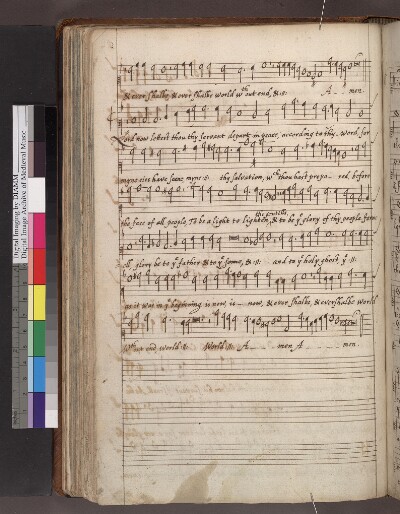 & ever shalbe & ever shalbe world wth out end, &:s: A - - men
Lord now lettest thou thy servant depart in peace, according to thy word for
myne eies have seene myne :s: thy salvation, wth thou hast prepa - red, before
the face of all people, To be a light to lighten the gentills & to be ye glory of thy people
all, glory be to ye father & to ye sonne, &:s: and to ye holy ghost, ye :s:
as it was in ye beginning is now, is - now, & ever shalbe, & ever shalbe world
wthout end, world :s: World :s: A - - - men A - - - men
Digital Imaging by DIAMM
Digital Image Archive of Medieval Music